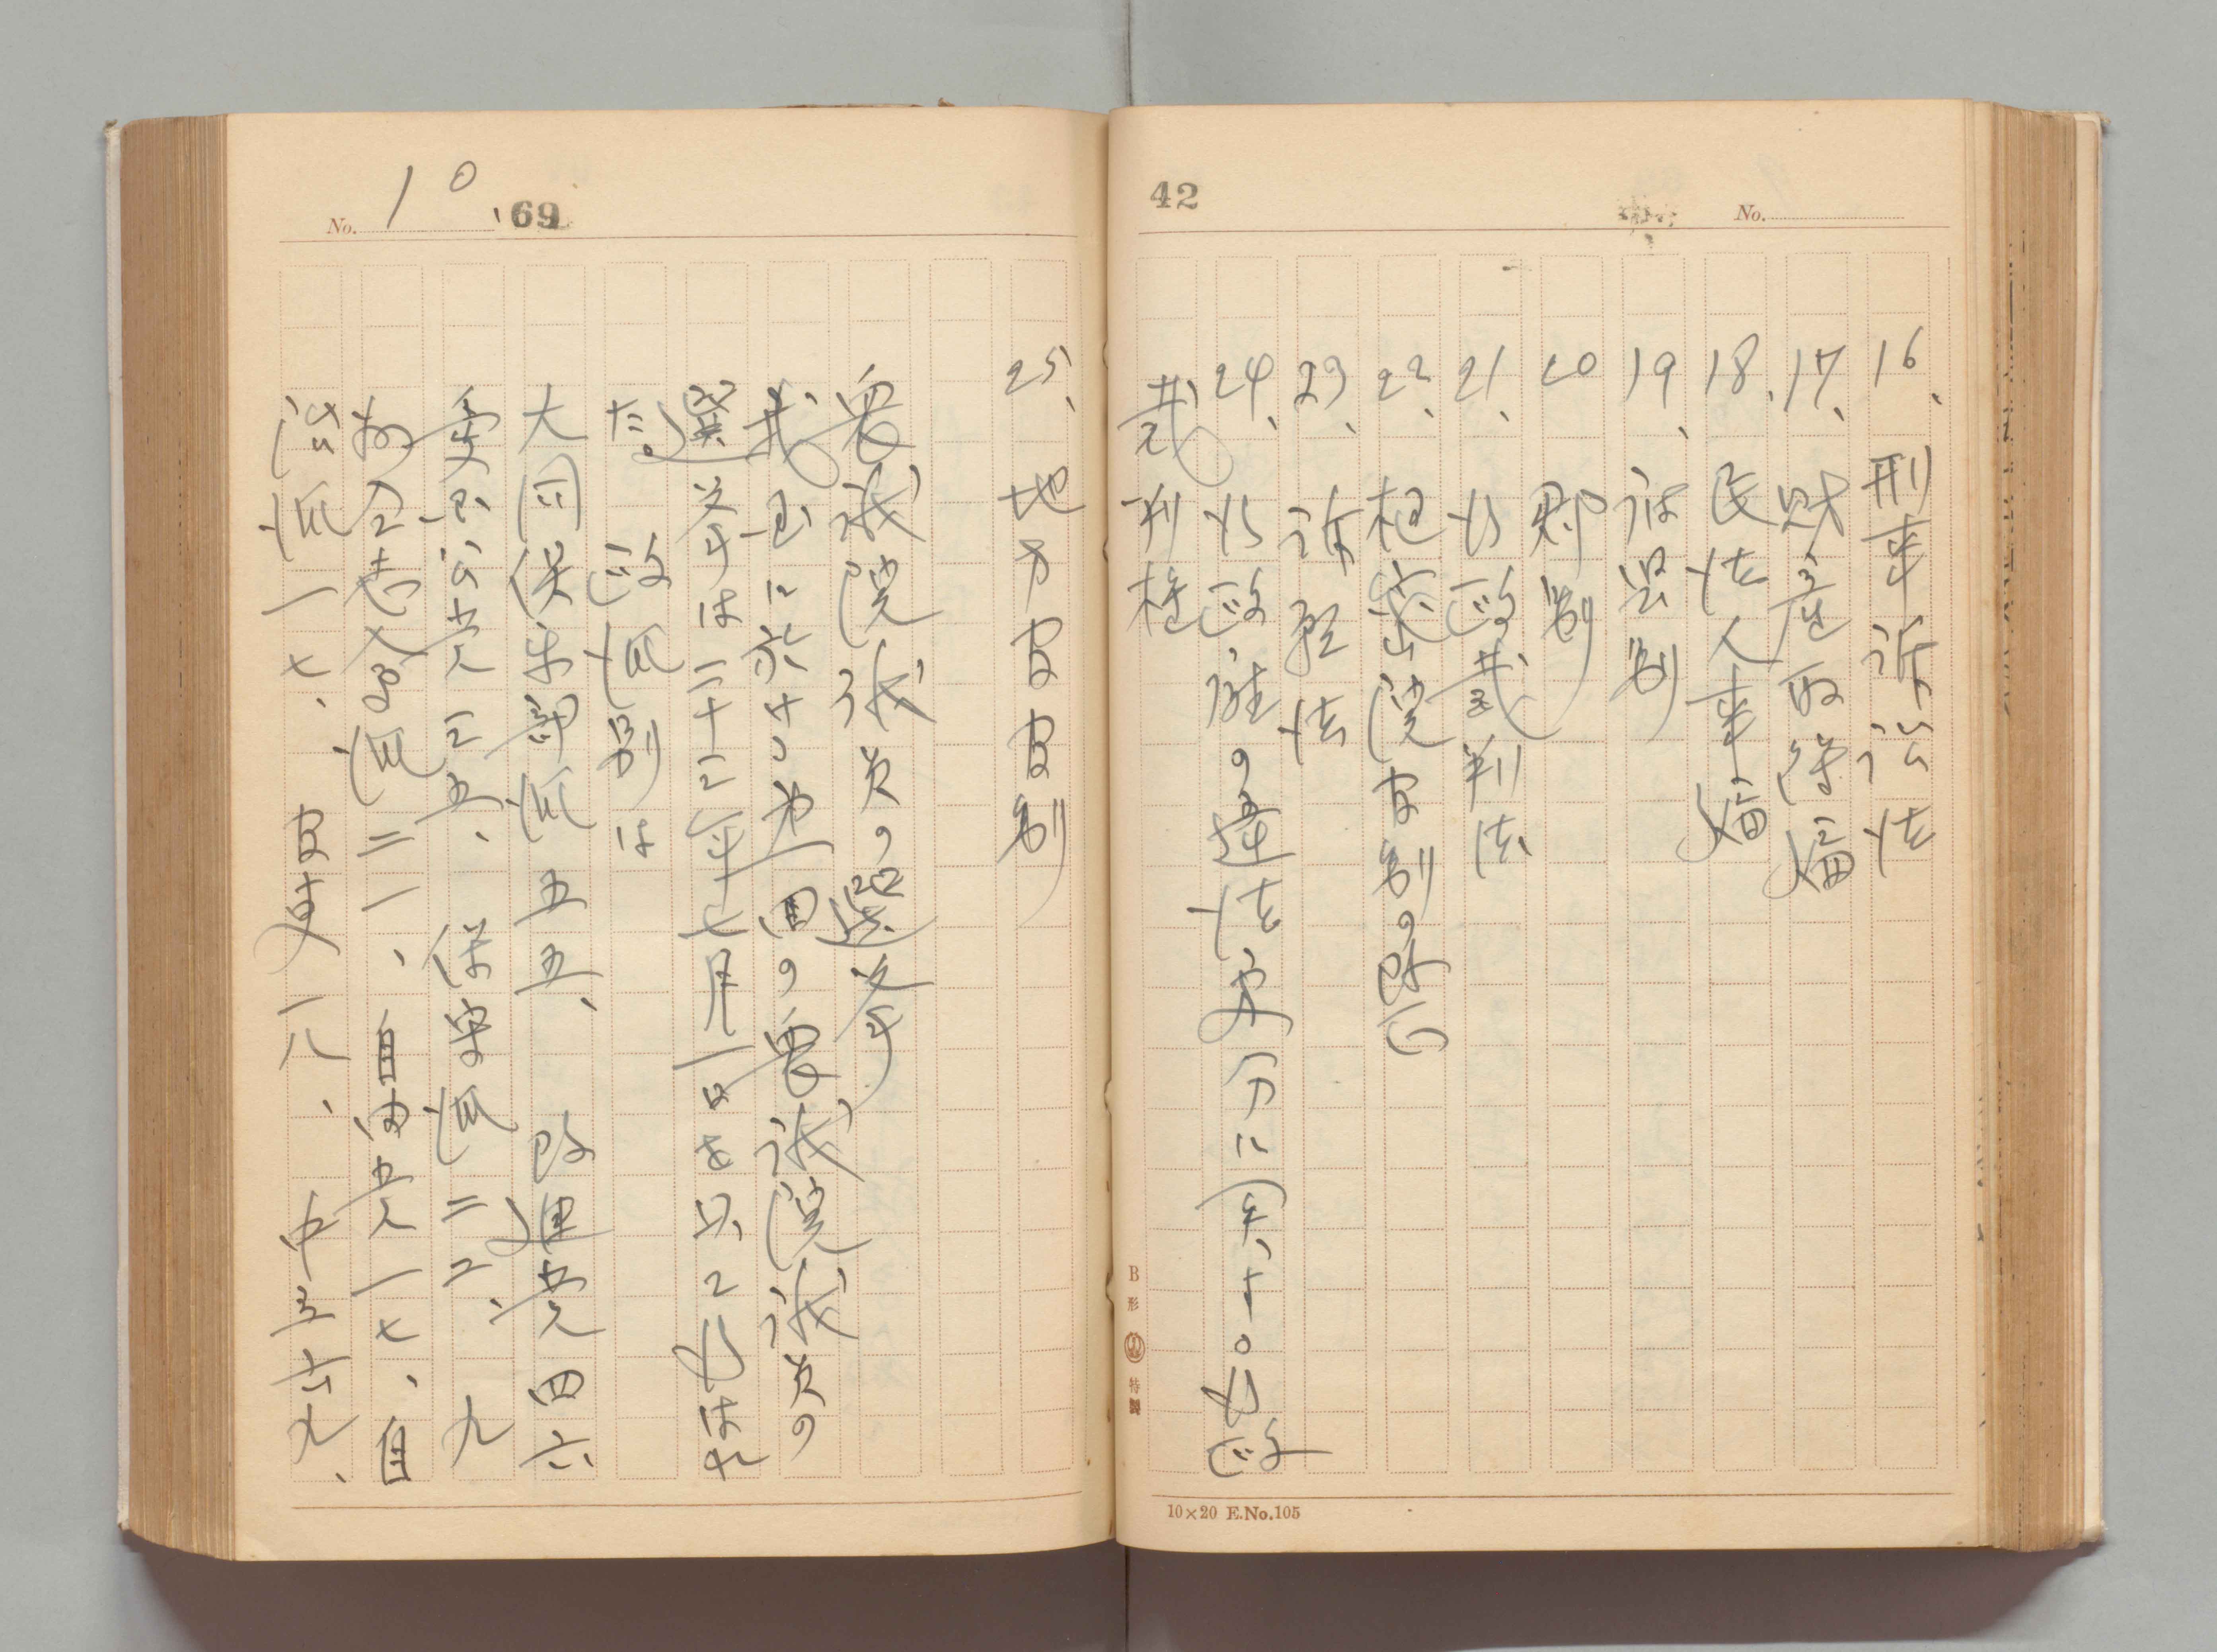 42
No.
16、刑事訴訟法
17、財産取得編
18、民法人事編
19、府県制
20 郡制
21、行政裁判法
22、枢密院官制の改正
23、訴願法
24、行政庁の違法処分に関する行政
裁判権
B形 特製
10×20 E.No.105
No. 10
69
25、地方官官制
衆議院議員の選挙
我国に於ける第一回の衆議院議員の
選挙は二十三年七月一日を以て行はれ
た。政派別は
大同倶楽部派五五、改進党四六
愛国公党三五、保守派二二、九
州同志会派二一、自由党一七、自
治派一七、官吏一八、中立六九、